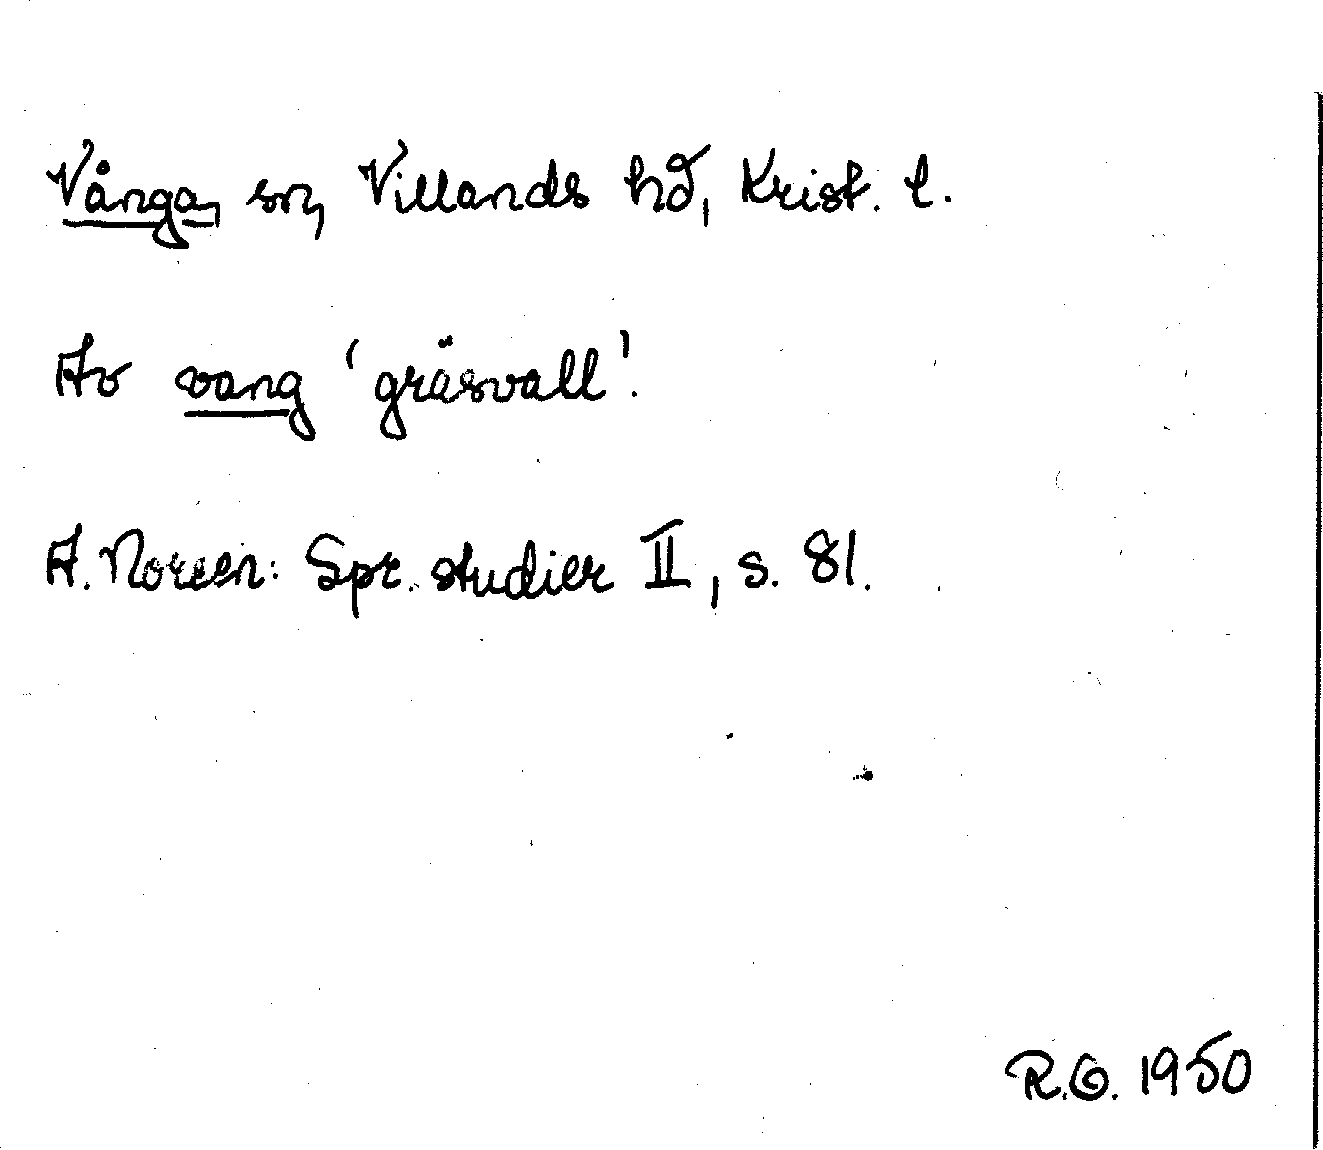 Vånga, sn, Villands hd, Krist. l.
Av vang 'gräsvall'.
A. Noreen: Spr. studier II, s. 81.
R.G. 1950